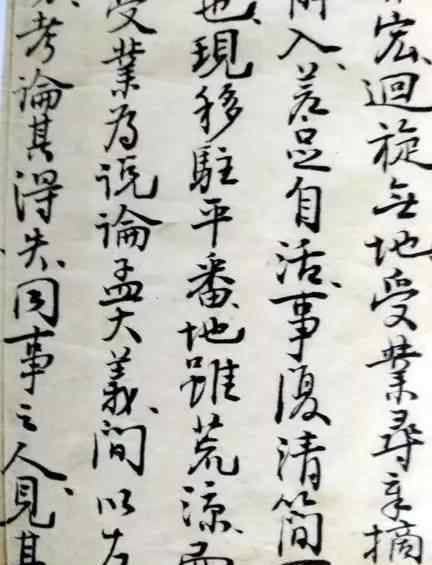 宏迴旋無地受業尋章摘
入差足自活事復清簡
也現移駐平番地雖荒涼而
受業為說論孟大義間以古
考論其得失同事之人見其